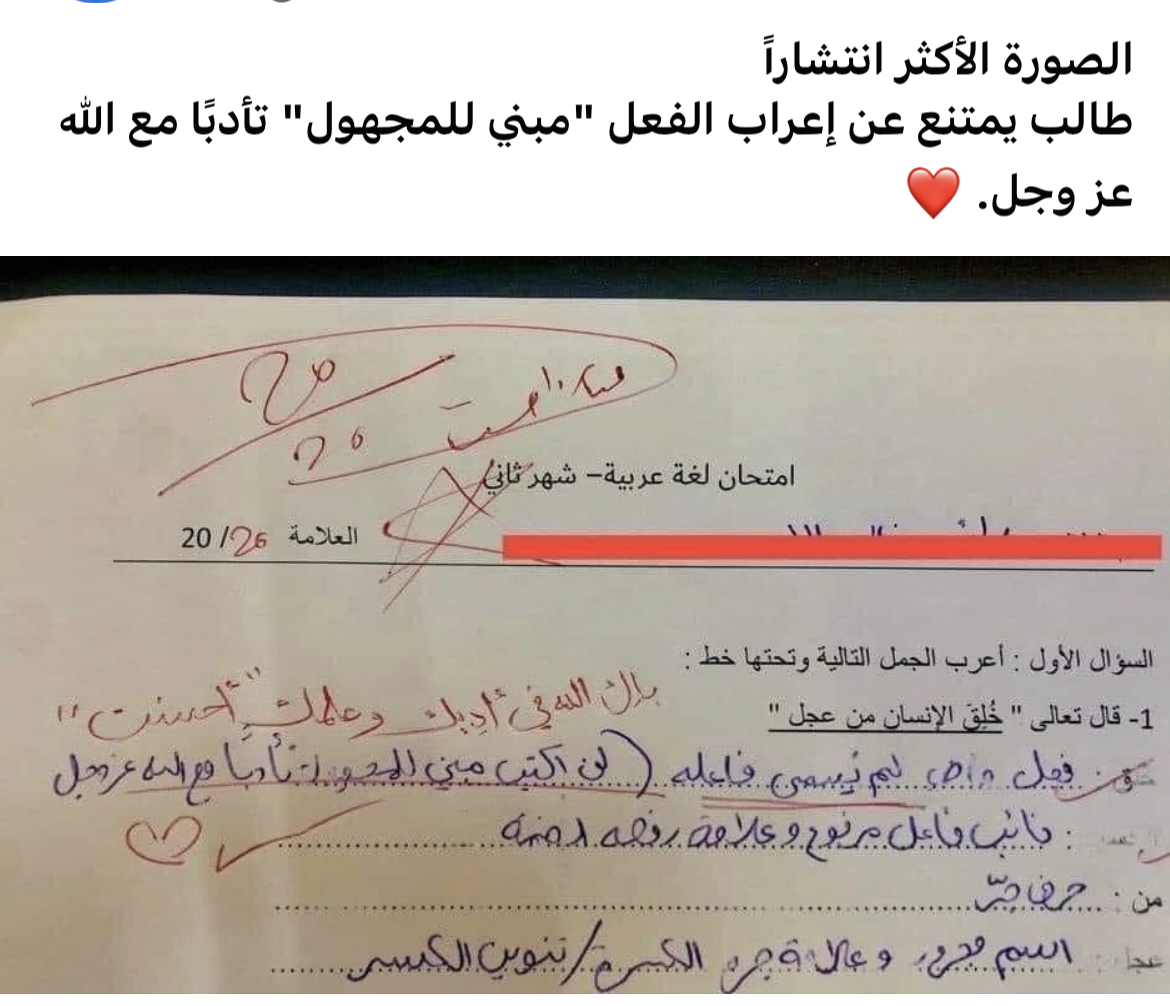 الصورة الأكثر انتشاراً
طالب يمتنع عن إعراب الفعل "مبني للمجهول" تأدبًا مع الله
عز وجل. ❤️
20
20
امتحان لغة عربية– شهر ثاني
العلامة 20 / 20
السؤال الأول : أعرب الجمل التالية وتحتها خط :
1- قال تعالى " خُلِقَ الإنسان من عجل "
بارك الله في أدبك وعلمك "أحسنت"
فعل ماضٍ لم يسمى فاعله ( لن أكتب مبني للمجهول تأدبًا مع الله عز وجل
: نائب فاعل مرفوع وعلامة رفعه الضمة
من : حرف جرّ
عجل : اسم مجرور وعلامة جره الكسرة / تنوين الكسر